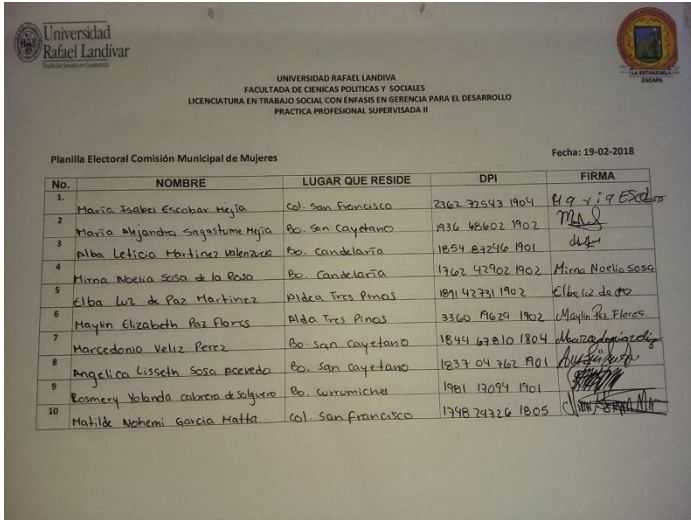 Universidad
Rafael Landívar
Tradición Jesuita en Guatemala
LA ESTANZUELA
ZACAPA
UNIVERSIDAD RAFAEL LANDIVA
FACULTADA DE CIENICAS POLITICAS Y SOCIALES
LICENCIATURA EN TRABAJO SOCIAL CON ÉNFASIS EN GERENCIA PARA EL DESARROLLO
PRACTICA PROFESIONAL SUPERVISADA II
Planilla Electoral Comisión Municipal de Mujeres Fecha: 19-02-2018
No. NOMBRE LUGAR QUE RESIDE DPI FIRMA
1. María Isabel Escobar Mejía Col. San Francisco 2362 72543 1904
2 María Alejandra Sagastume Mejia Bo. San Cayetano 1936 68602 1902
3 Alba Leticia Martinez Valenzuela Bo. Candelaria 1854 87246 1901
4 Mirna Noelia Sosa de la Rosa Bo. Candelaria 1762 42902 1902 Mirna Noelia Sosa
5 Elba Luz de Paz Martinez Aldea Tres Pinos 1891 42731 1902 Elba luz de paz
6 Maylin Elizabeth Paz Flores Alda Tres Pinos 3360 19629 1902 Maylin Paz Flores.
7 Marcedonia Veliz Perez Bo. san cayetano 1844 67810 1804
8 Angelica Lisseth Sosa Acevedo Bo. san cayetano 1837 04762 1901
9 Rosmery Yolanda cabrera de salguero Bo. Curumiches 1981 17094 1901
10 Matilde Nohemi Garcia Matta Col. San francisco 1748 24726 1805